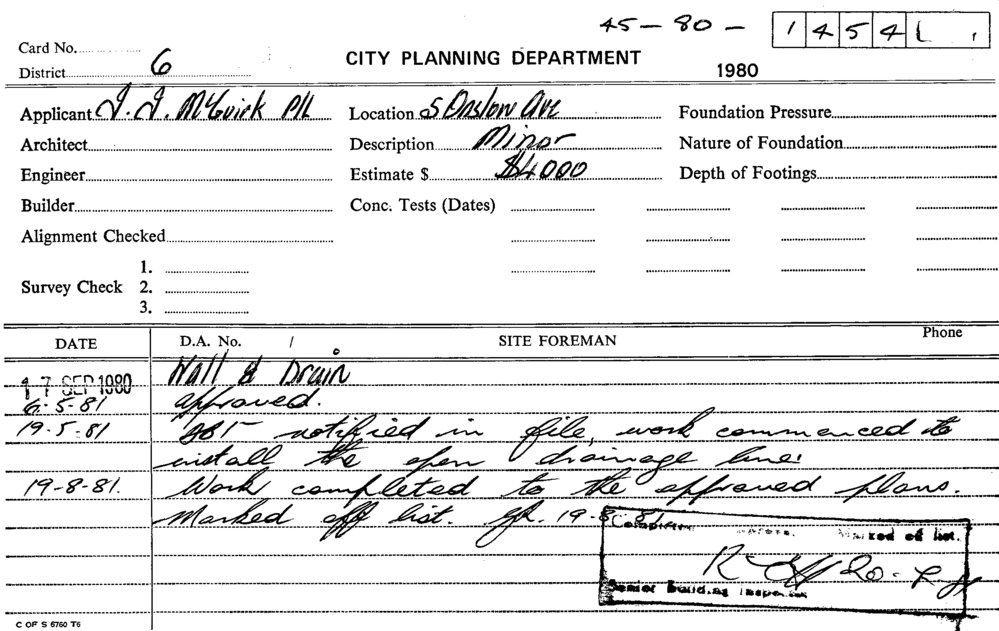 45 - 80 - 1454
Card No.
District 6
CITY PLANNING DEPARTMENT
1980
Applicant J. J. McGuirk P/L
Location 5 Onslow Ave
Foundation Pressure
Architect
Description Minor
Nature of Foundation
Engineer
Estimate $ $4000
Depth of Footings
Builder
Conc. Tests (Dates)
Alignment Checked
1.
Survey Check 2.
3.
DATE D.A. No. / SITE FOREMAN Phone
Wall & Drain
17 SEP 1980
6.5.81 approved.
19.5.81 notified in file, work commenced to
install the open drainage line.
19-8-81. Work completed to the approved plans.
Marked off list. 19-8-81
Completion Marked of list.
Senior Building Inspector
C OF S 6760 T6